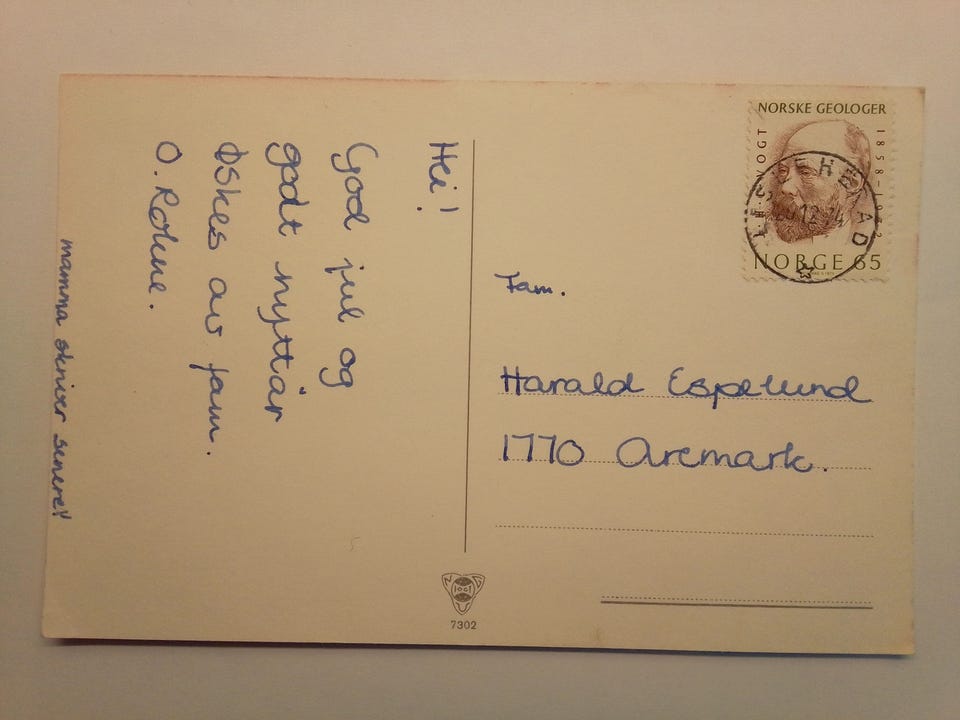 Hei!
God jul og
godt nyttår
Øskes av fam.
O. Rohne.
mamma skriver senere!
NORSKE GEOLOGER
VOGT
1858-1932
NORGE 65
Fam.
Harald Espelund
1770 Aremark.
7302